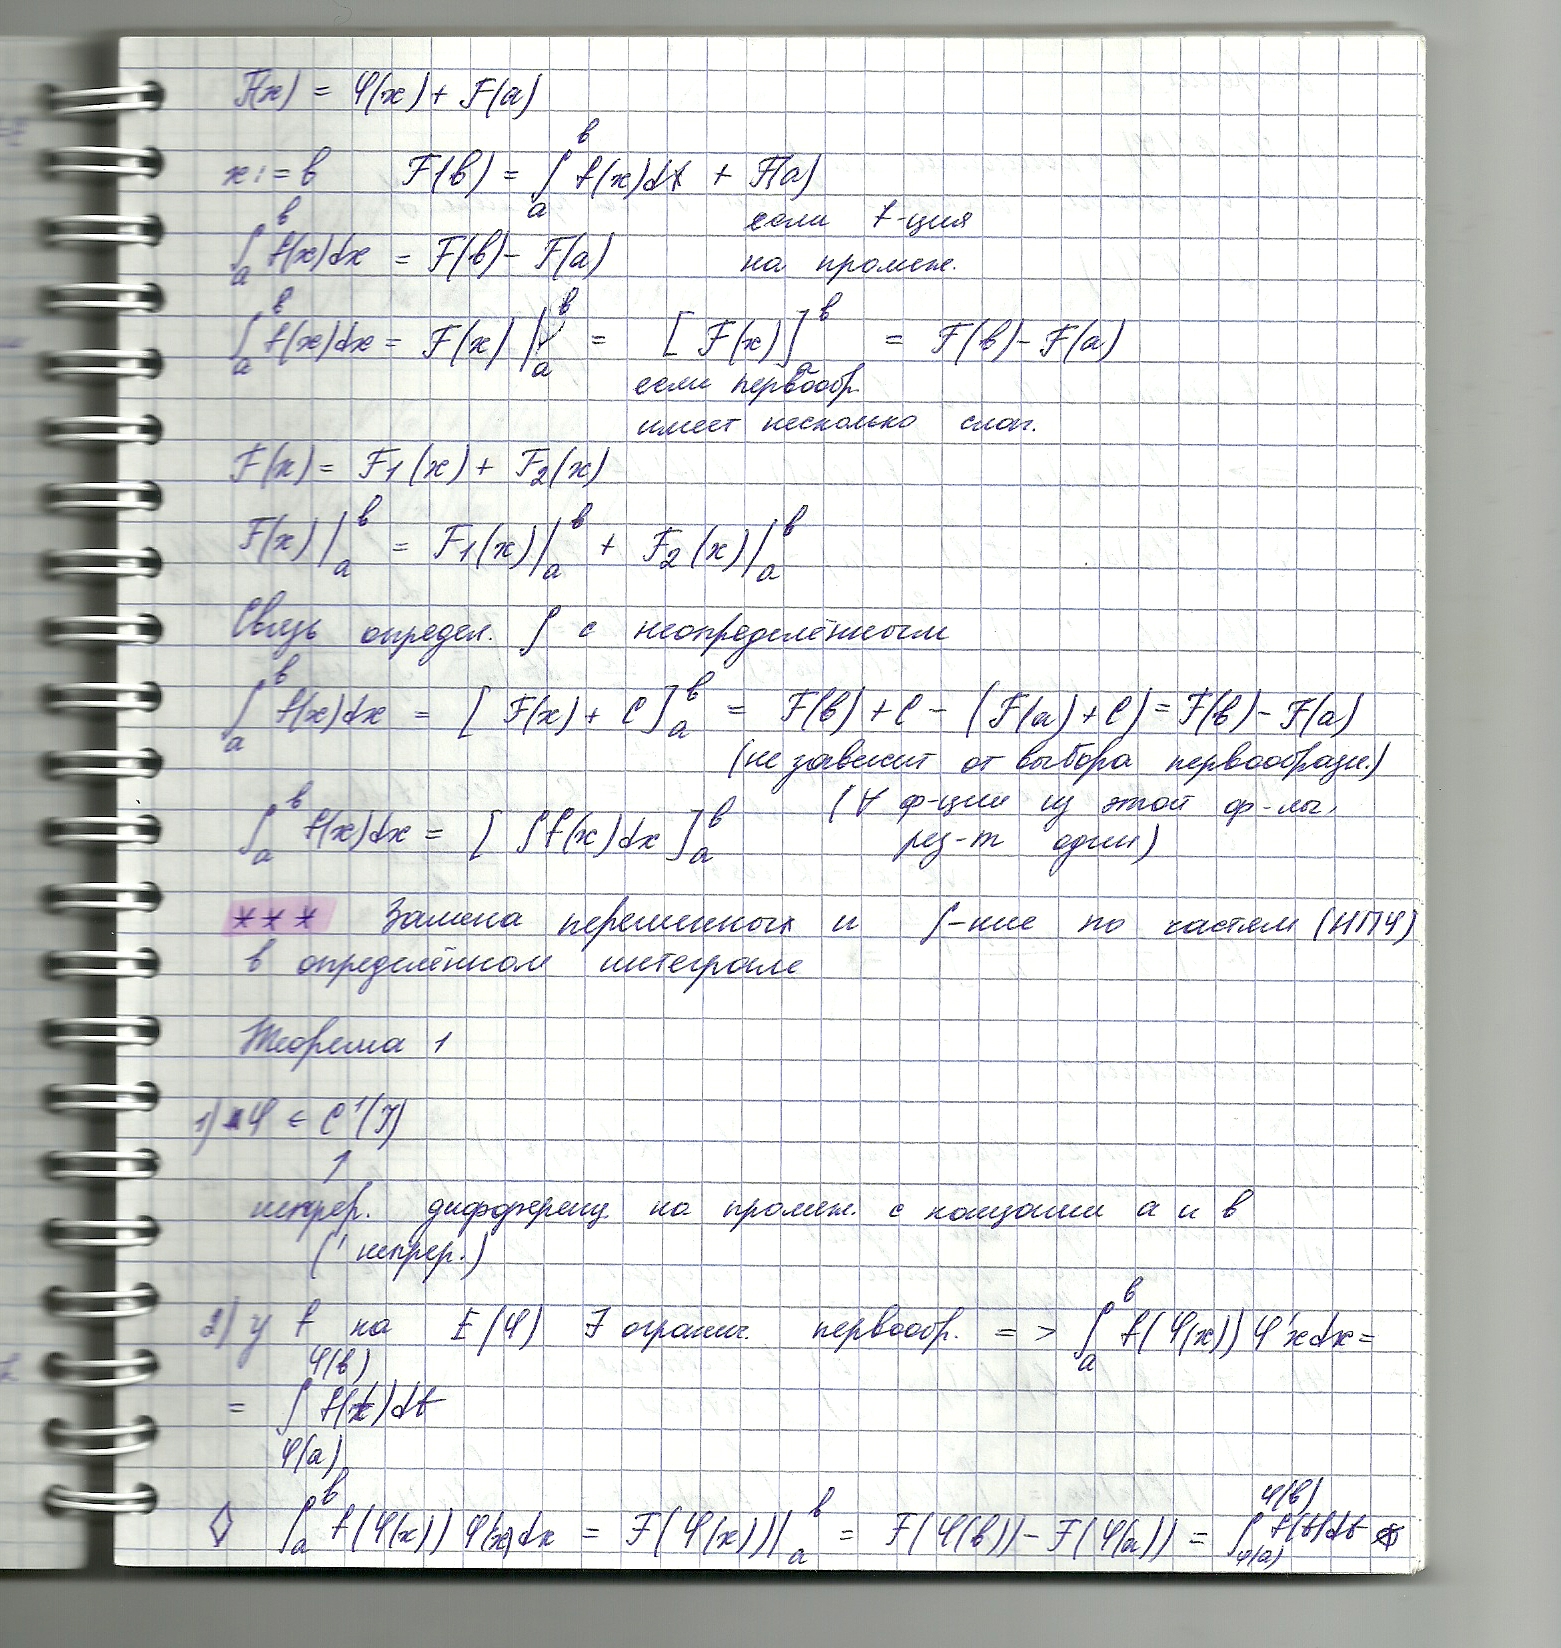 F(x) = φ(x) + F(a)
x := b F(b) = ∫_a^b f(x)dx + F(a)
если f-ция
∫_a^b f(x)dx = F(b) - F(a) на промеж.
∫_a^b f(x)dx = F(x) |_a^b = [F(x)]_a^b = F(b) - F(a)
если первообр.
имеет несколько слаг.
F(x) = F₁(x) + F₂(x)
F(x)|_a^b = F₁(x)|_a^b + F₂(x)|_a^b
Связь определ. ∫ с неопределённым
∫_a^b f(x)dx = [F(x) + C]_a^b = F(b) + C - (F(a) + C) = F(b) - F(a)
(не зависит от выбора первообразн.)
(∀ ф-ции из этой ф-лы,
∫_a^b f(x)dx = [∫f(x)dx]_a^b рез-т один)
*** Замена переменных и ∫-ние по частям (ИПЧ)
в определённом интеграле
Теорема 1
1) φ ∈ C¹(J)
↑
непрер. дифференц на промеж. с концами a и b
(' непрер.)
2) у f на E(φ) ∃ огранич. первообр. => ∫_a^b f(φ(x)) φ'x dx =
= ∫_φ(a)^φ(b) f(t)dt
◊ ∫_a^b f(φ(x)) φ(x)dx = F(φ(x))|_a^b = F(φ(b)) - F(φ(a)) = ∫_φ(a)^φ(b) f(t)dt